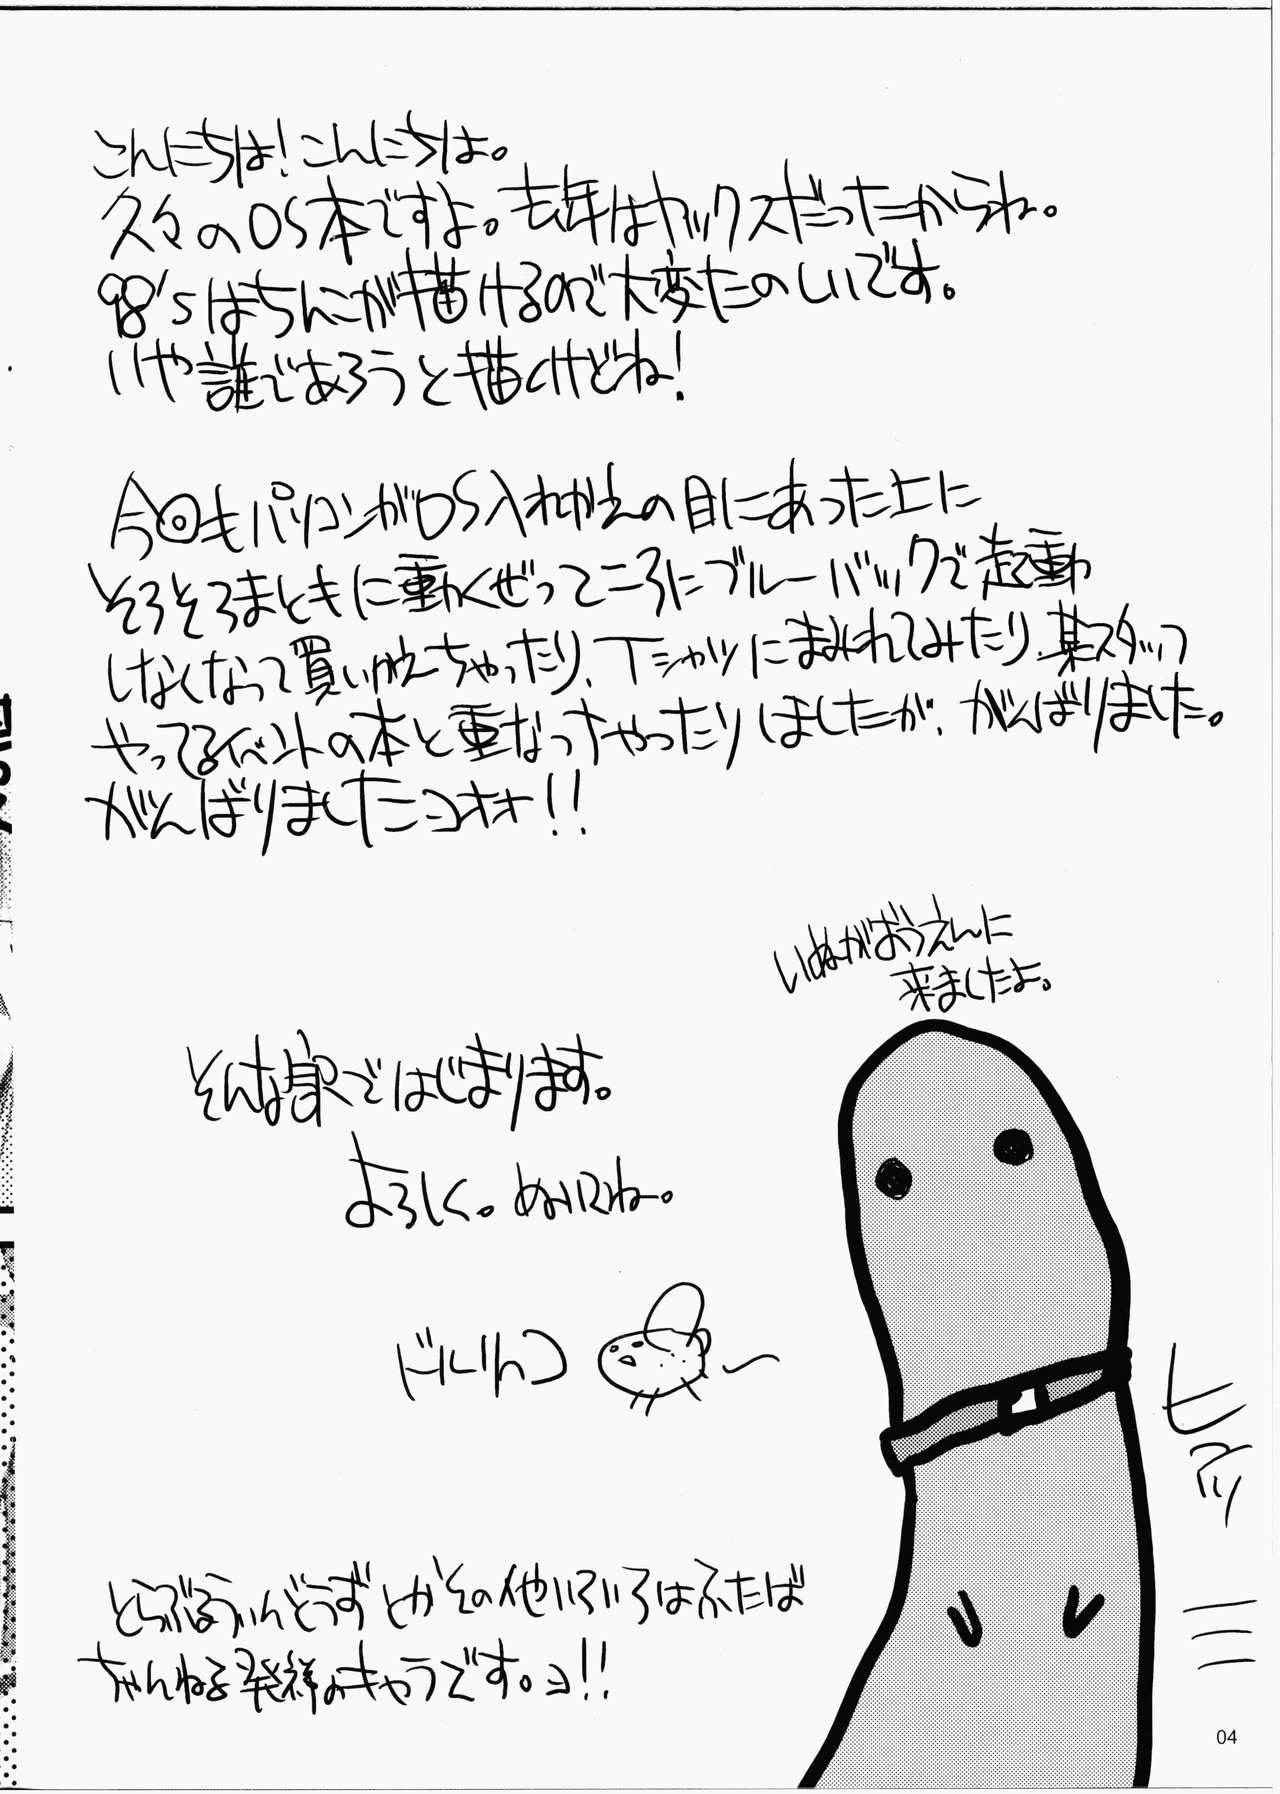 こんにちは！こんにちは。
久々のOS本ですよ。去年はヤックスだったからね。
98'sはちんこが描けるので大変たのしいです。
いや誰であろうと描くけどね！
今回もパソコンがOS入れかえの目にあった上に
そろそろまともに動くぜってころにブルーバックで起動
しなくなって買いかえちゃったり、Tシャツにまみれてみたり、某スタッフ
やってるイベントの本と重なっちゃったりしましたが、がんばりました。
がんばりましたニョオォ！！
いぬがおうえんに
来ましたよ。
そんな訳ではじまります。
よろしく。ぬいにね。
ドルリんコ
ヒアッ
とらぶるうぃんどうずとかその他いろいろはふたば
ちゃんねる発祥のキャラです。ョ！！
04